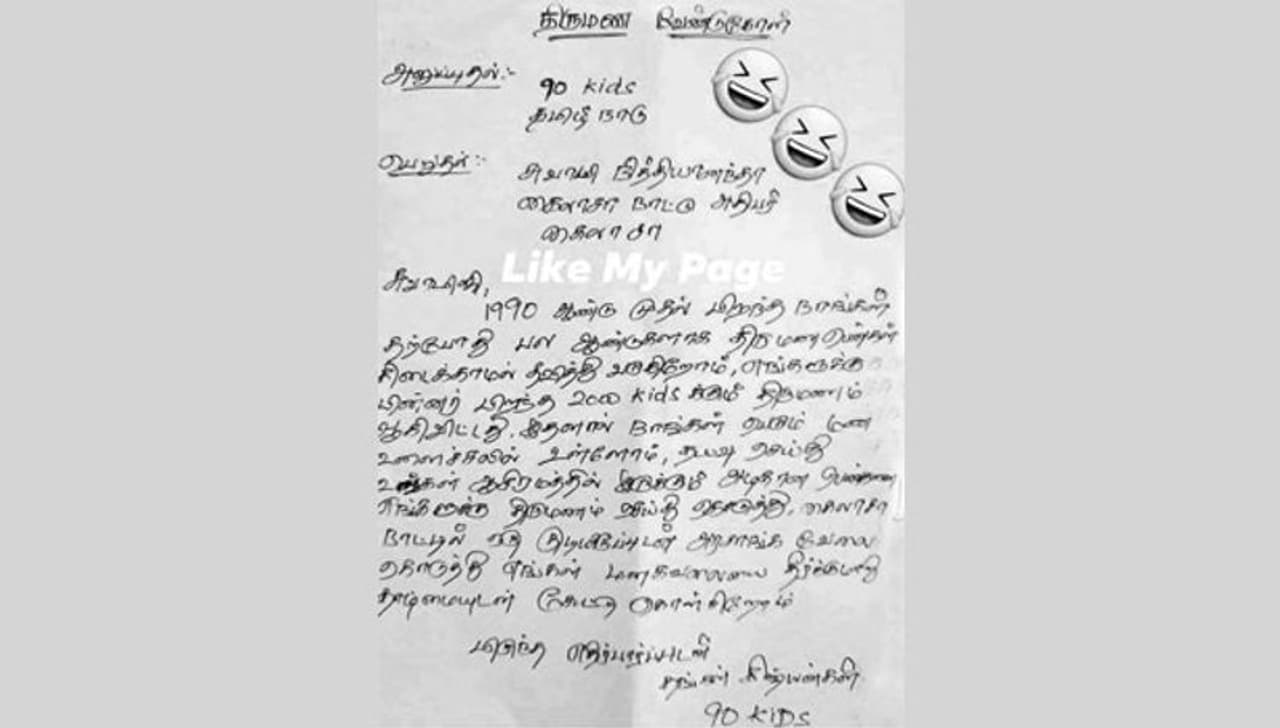 திருமண வேண்டுகோள்
அனுப்புதல்:-
90 kids
தமிழ் நாடு
பெறுதல்:-
சுவாமி நித்தியானந்தா
கைலாசா நாட்டு அதிபதி
கைலாசா
Like My Page
சுவாமி,
1990 ஆண்டு முதல் பிறந்த நாங்கள்
தற்போது பல ஆண்டுகளாக திருமண பெண்கள்
கிடைக்காமல் தவித்து வருகிறோம், எங்களுக்கு
பின்னர் பிறந்த 2000 kids க்கும் திருமணம்
ஆகிவிட்டது. இதனால் நாங்கள் பெரும் மண
உளைச்சலில் உள்ளோம், தயவு செய்து
உங்கள் ஆசிரமத்தில் இருக்கும் அழகான பெண்ணை
எங்களுக்கு திருமணம் செய்து கொடுத்து, கைலாசா
நாட்டில் ஒரு குடியுரிமையுடன் அரசாங்க வேலை
கொடுத்து எங்கள் மனகவலையை தீர்க்குமாறு
தாழ்மையுடன் கேட்டு கொள்கிறோம்
மிகுந்த எதிர்பார்ப்புடன்
தங்கள் சிஷ்யன்கள்
90 KIDS